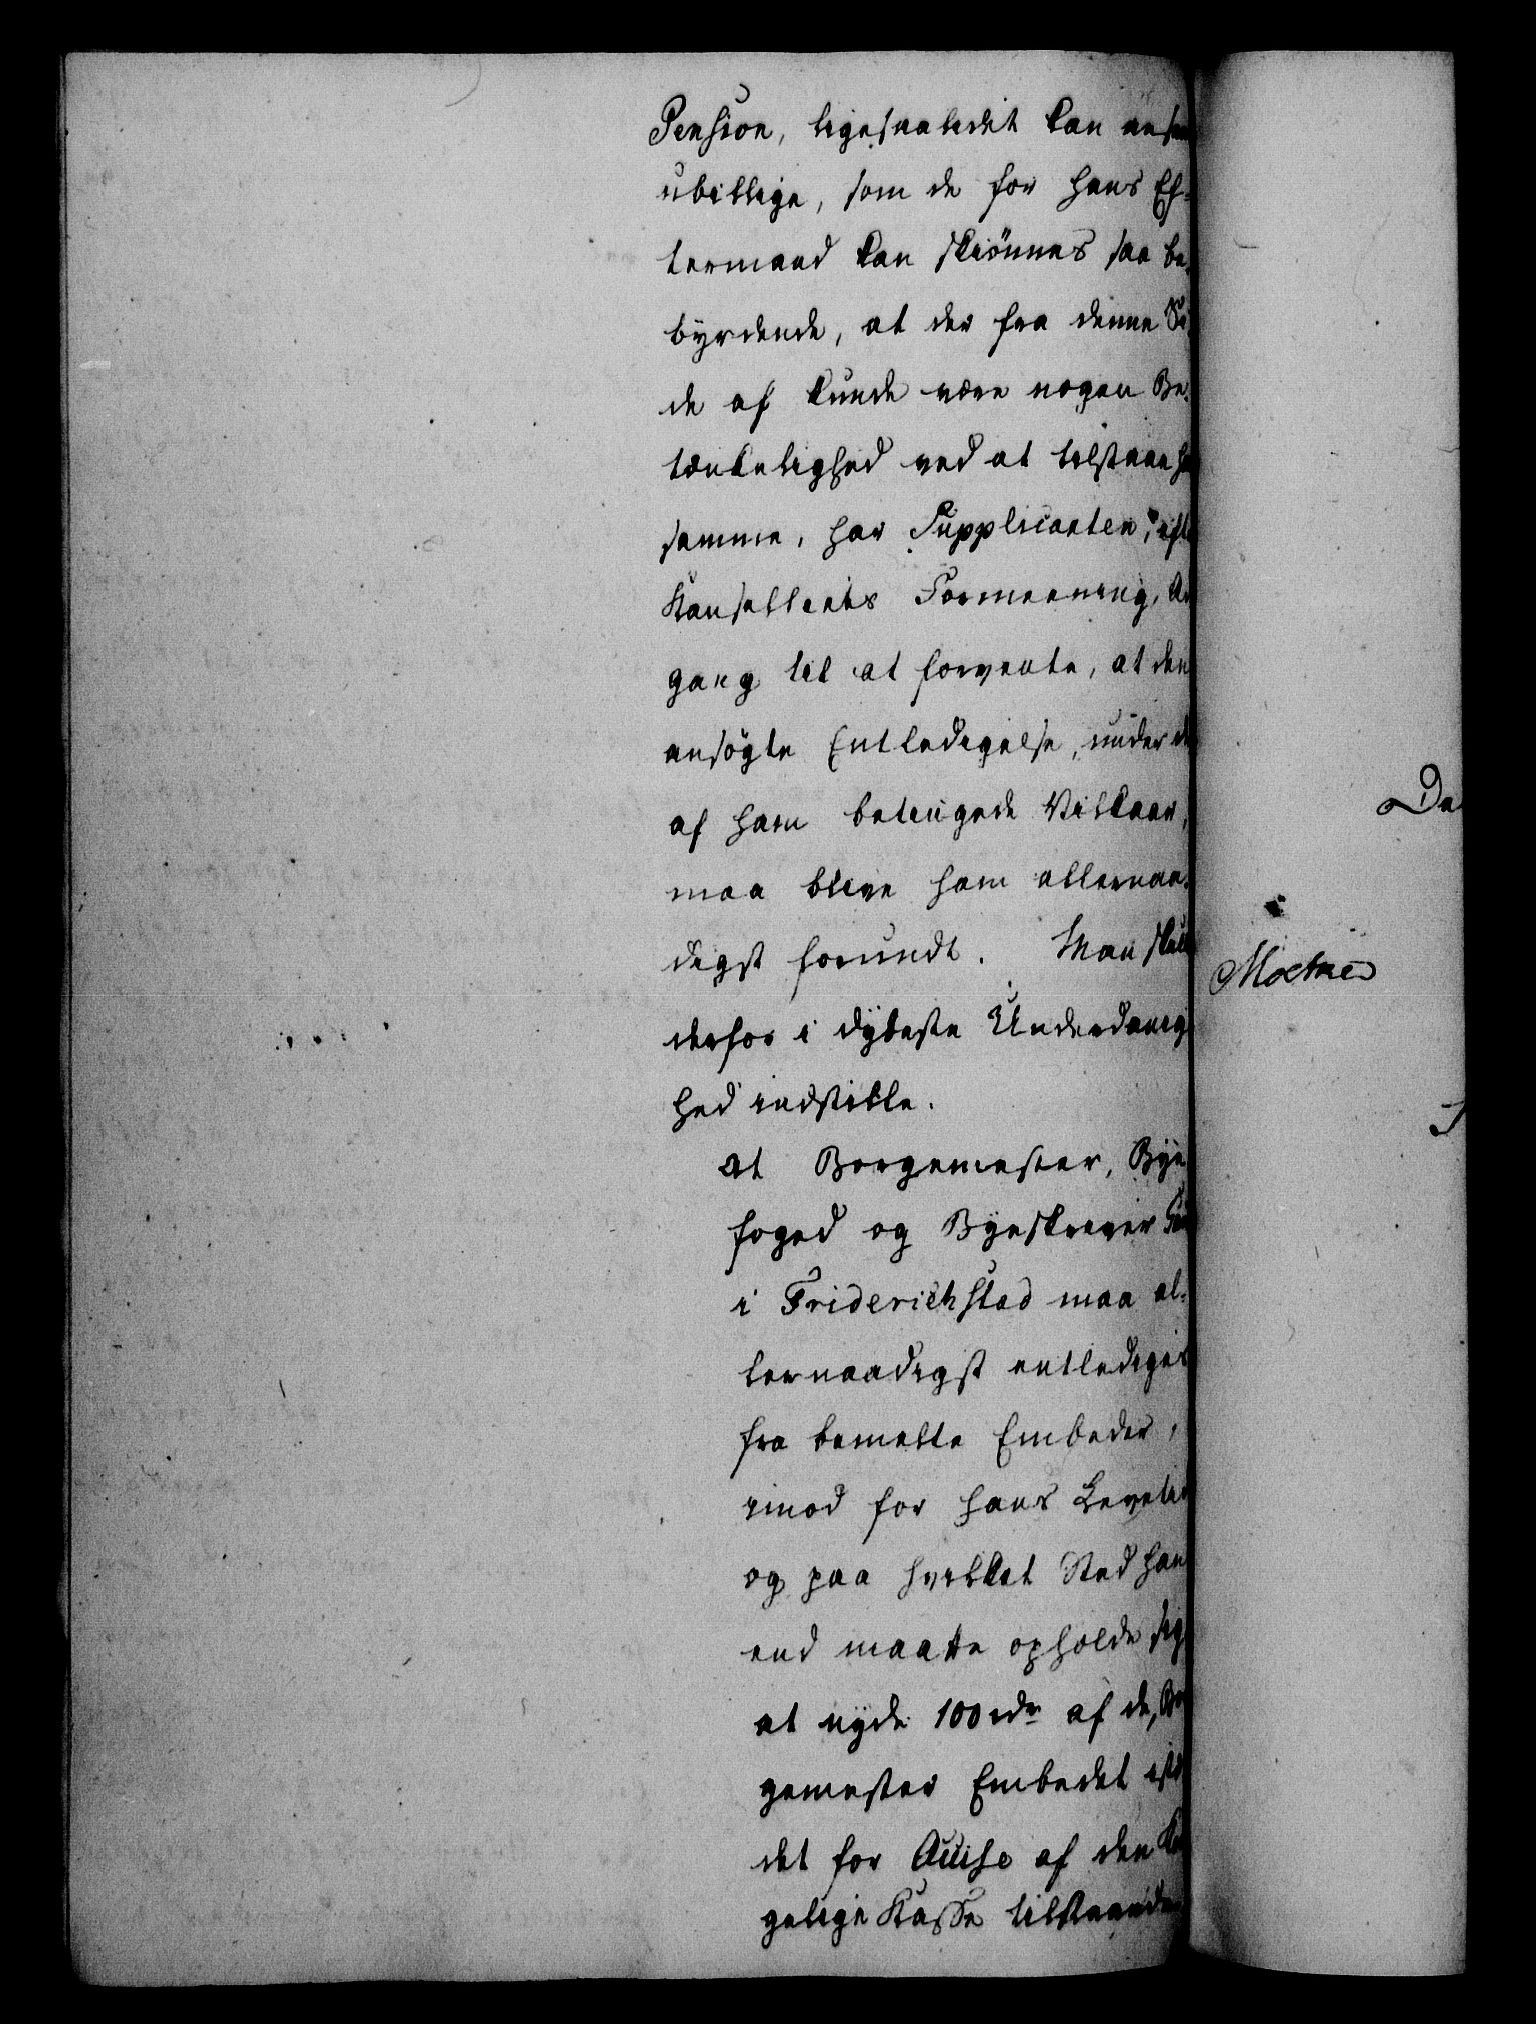 Pension, ligesaalidet kan ansees
ubillige, som de for hans Ef-
termand kan skiönnes saa be-
byrdende, at der fra denne Si-
de af kunde være nogen Be-
tænkelighed ved at tilstaae ham
samme, har Supplicanten, efter
Kancelliets Formeening, Ad-
gang til at forvente, at den
ansögte Entledigelse, under de
af ham betingede Vilkaar,
maa blive ham allernaa-
digst forundt. Man skulle
derfor i dybeste Underdanig-
hed indstille.
at Borgemester, Bye-
foged og Byeskriver
i Friderichstad maa al-
lernaadigst entlediges
fra bemelte Embeder,
imod for hans Levetid
og paa hvilket Sted han
end maatte opholde sig
at nyde 100 rdr af de, Bor-
gemester Embedet iste-
det for Accise af den Kon-
gelige Kasse tilstaaede
De